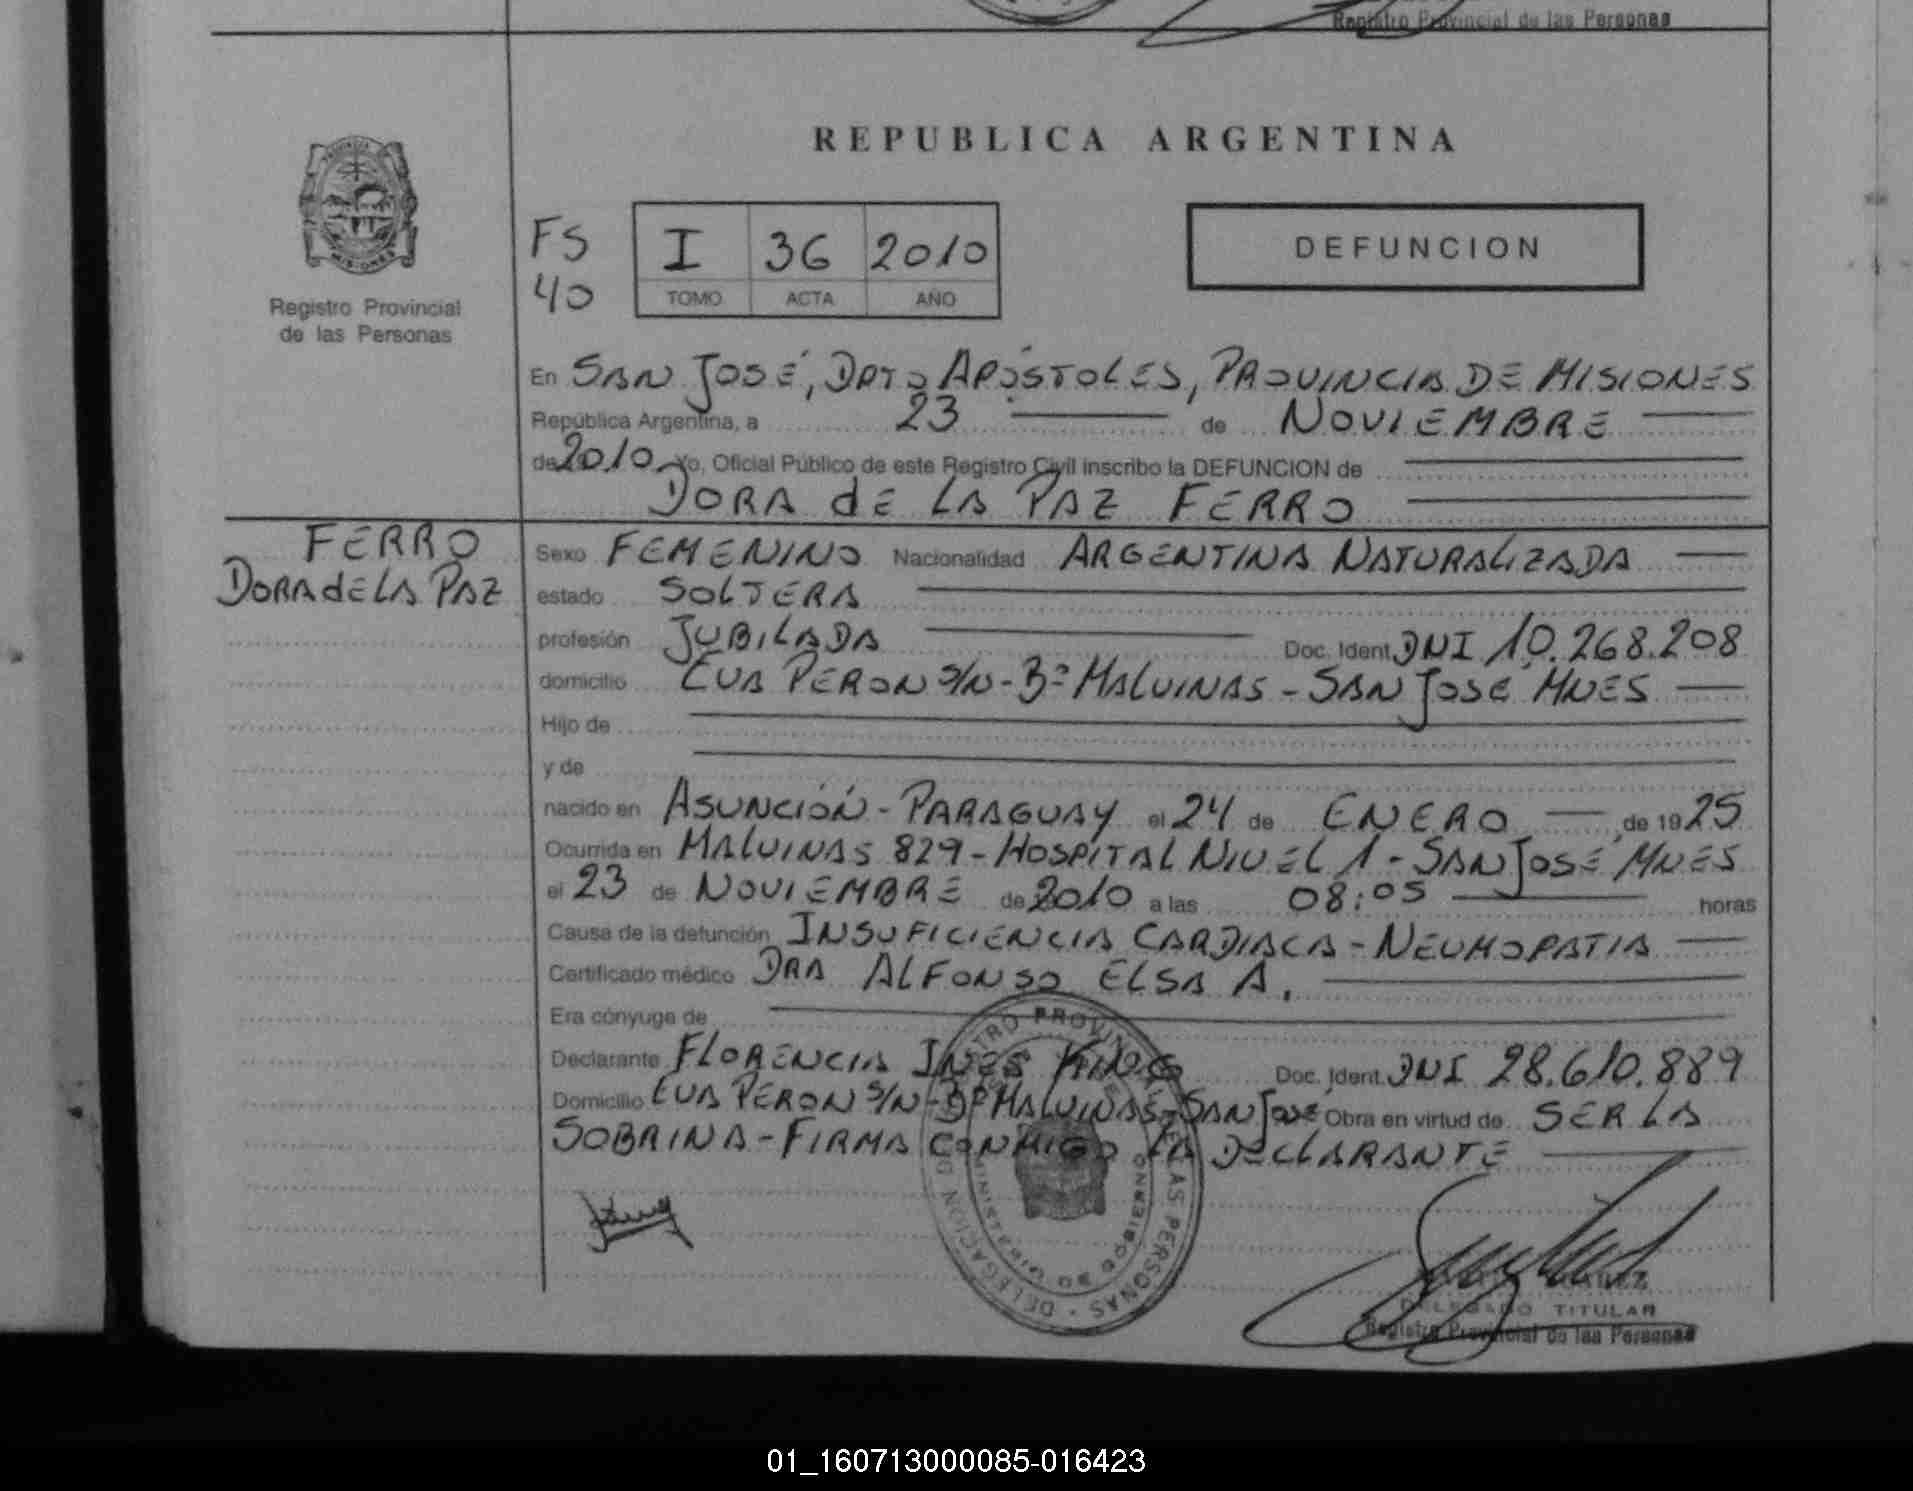 Registro Provincial de las Personas
REPUBLICA ARGENTINA
PROVINCIA
MISIONES
Registro Provincial
de las Personas
FS
40
I 36 2010
TOMO ACTA AÑO
DEFUNCION
En SAN JOSÉ, DPTO APÓSTOLES, PROVINCIA DE MISIONES
República Argentina, a 23 de NOVIEMBRE
de 2010 Yo, Oficial Público de este Registro Civil inscribo la DEFUNCION de
DORA dE LA PAZ FERRO
FERRO
DORA dE LA PAZ
Sexo FEMENINO Nacionalidad ARGENTINA NATURALIZADA
estado SOLTERA
profesión JUBILADA Doc. Ident. DNI 10.268.208
domicilio EVA PERON S/N - Bº MALVINAS - SAN JOSÉ MNES
Hijo de
y de
nacido en ASUNCIÓN - PARAGUAY el 24 de ENERO de 1925
Ocurrida en MALVINAS 829 - HOSPITAL NIVEL 1 - SAN JOSÉ MNES
el 23 de NOVIEMBRE de 2010 a las 08:05 horas
Causa de la defunción INSUFICIENCIA CARDIACA - NEUMOPATIA
Certificado médico DRA ALFONSO ELSA A.
Era cónyuge de
Declarante FLORENCIA INES KING Doc. Ident. DNI 28.610.889
Domicilio EVA PERON S/N - Bº MALVINAS - SAN JOSÉ Obra en virtud de SER LA
SOBRINA - FIRMA CONMIGO LA DECLARANTE
DELEGADO TITULAR
Registro Provincial de las Personas
01_160713000085-016423